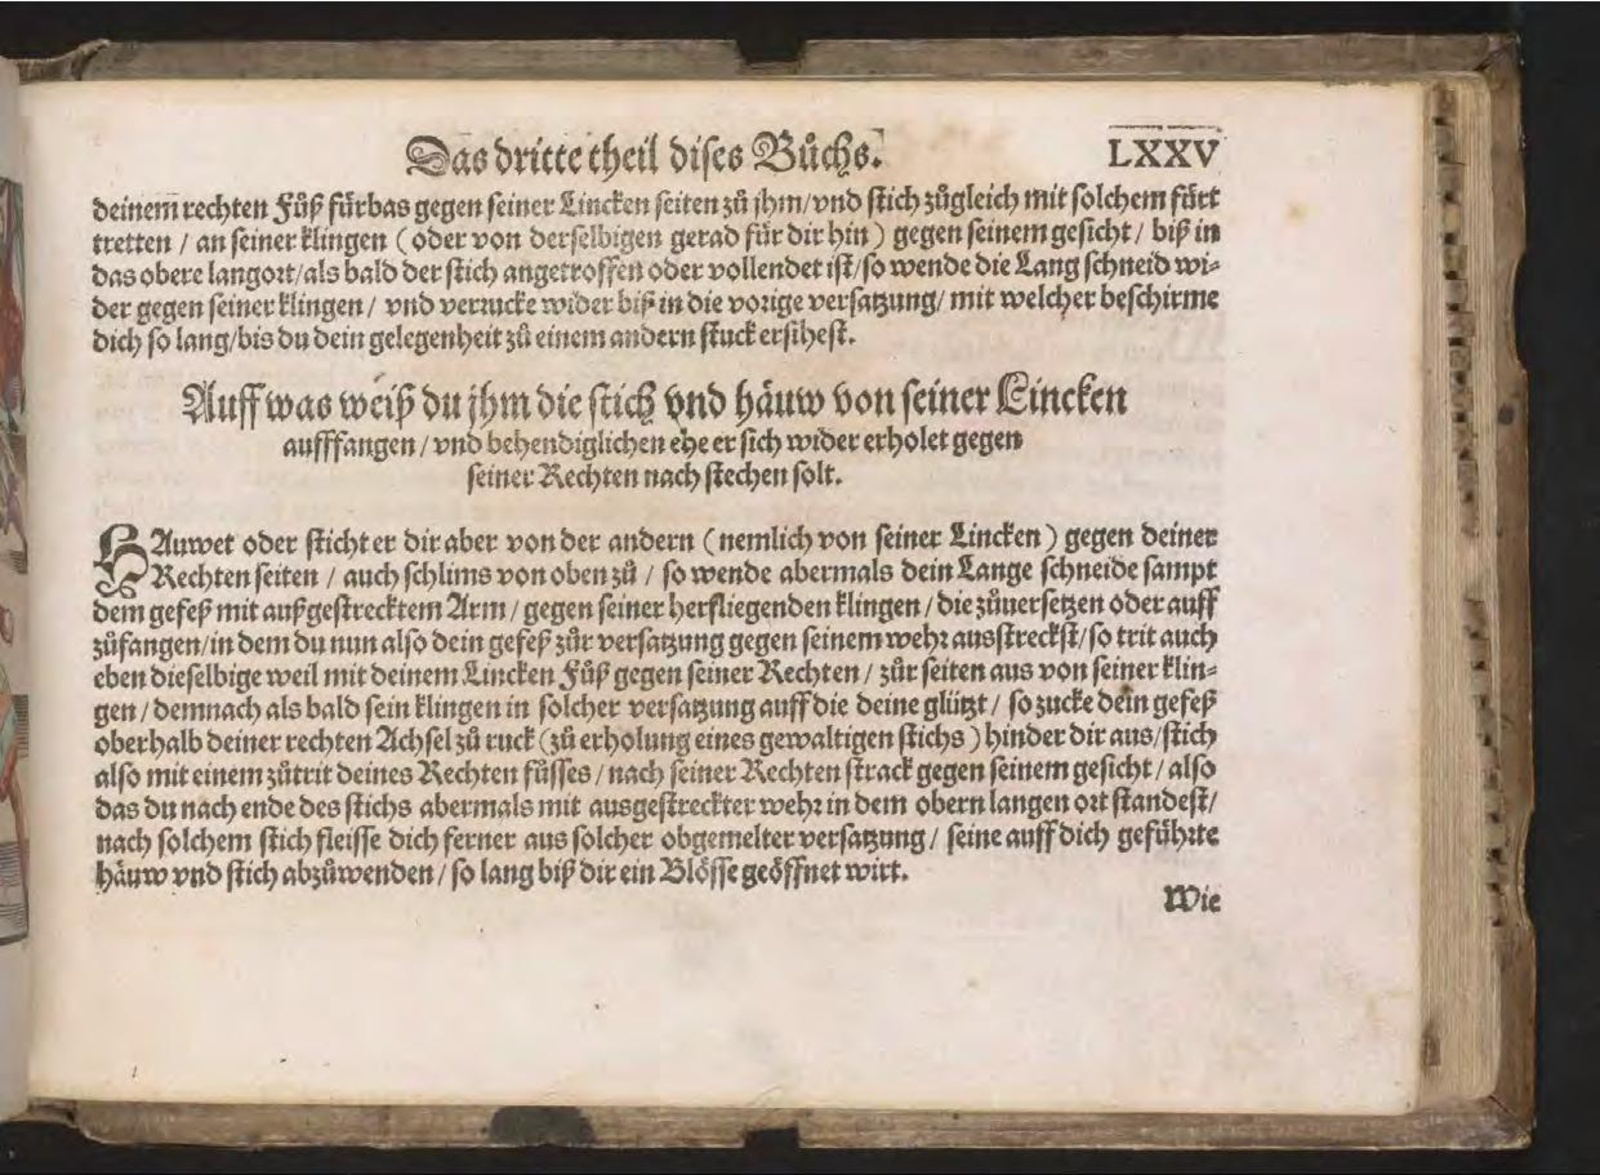 Das dritte theil dises Bůchs. LXXV
deinem̄ rechten Fůß fürbas gegen seiner Lincken seiten zů jhm/ vnd stich zůgleich mit solchem fürt
tretten / an seiner klingen (oder von derselbigen gerad für dir hin) gegen seinem gesicht / biß in
das obere langort/ als bald der stich angetroffen oder vollendet ist/ so wende die Lang schneid wi⸗
der gegen seiner klingen / vnd verrucke wider biß in die vorige versatzung/ mit welcher beschirme
dich so lang/ bis du dein gelegenheit zů einem andern stuck ersihest.
Auff was weiß du jhm die stich vnd häuw von seiner Lincken
aufffangen / vnd behendiglichen ehe er sich wider erholet gegen
seiner Rechten nach stechen solt.
HAuwet oder sticht er dir aber von der andern (nemlich von seiner Lincken) gegen deiner
Rechten seiten / auch schlims von oben zů / so wende abermals dein Lange schneide sampt
dem gefeß mit außgestrecktem Arm / gegen seiner herfliegenden klingen / die zůuersetzen oder auff
zůfangen/ in dem du nun also dein gefeß zůr versatzung gegen seinem wehr ausstreckst/ so trit auch
eben dieselbige weil mit deinem Lincken Fůß gegen seiner Rechten / zůr seiten aus von seiner klin⸗
gen / demnach als bald sein klingen in solcher versatzung auff die deine glützt / so zucke dein gefeß
oberhalb deiner rechten Achsel zů ruck (zů erholung eines gewaltigen stichs) hinder dir aus/ stich
also mit einem zůtrit deines Rechten fůsses / nach seiner Rechten strack gegen seinem gesicht / also
das du nach ende des stichs abermals mit ausgestreckter wehr in dem obern langen ort standest/
nach solchem stich fleisse dich ferner aus solcher obgemelter versatzung / seine auff dich geführte
häuw vnd stich abzůwenden / so lang biß dir ein Blösse geöffnet wirt.
Wie